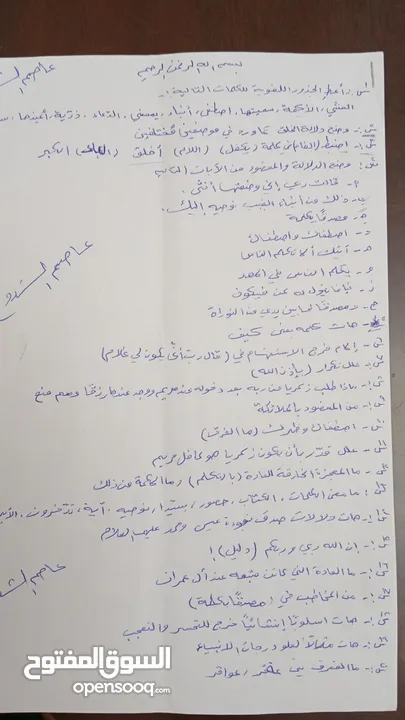 بسم الله الرحمن الرحيم
س١:- أعط الجذور اللغوية للكلمات التالية:-
المسيح، الأكمه، سميتها، اصطفى، أنباء، يمسسني، الدعاء، ذرية، أعيذها،
س:- وضح دلالة الفعل في موضعين مختلفين
س:- اضبط الفاء في كلمة (يكفل) (اللام) أخلق (الباء) الكبر
س:- وضح الدلالة والمقصود من الآيات التالية
أ- قالت رب إني وضعتها أنثى
ب- ذلك من أنباء الغيب نوحيه إليك
ج- مصدقًا بكلمة
د- اصطفاك واصطفاك
هـ- آيتك ألا تكلم الناس
و- يكلم الناس في المهد
ز- فإنما يقول له كن فيكون
ح- ومصدقًا لما بين يدي من التوراة
س:- هات كلمة بمعنى كيف
س:- إلام خرج الاستفهام في (قال رب أنى يكون لي غلام)
س:- علل تكرار (بإذن الله)
س:- ماذا طلب زكريا من ربه بعد دخوله عند مريم ووجد عندها رزقًا
س:- من المقصود بالملائكة
س:- اصطفاك وطهرك (ما الفرق)
س:- علل قدّر بأن يكون زكريا هو كافل مريم
س:- ما المعجزة الخارقة للعادة (بالتكلم) وما الحكمة من ذلك
س:- ما معنى الكتاب، حصور، سيدا، نوحيه، آية، تدخرون،
س:- هات دلالات صدق نبوة عيسى ومحمد عليهما السلام
س:- إن الله ربي وربكم (دليل)!
س:- ما العادة التي كانت متبعة عند آل عمران
س:- من المخاطب في (مصدقًا بكلمة)
س:- هات أسلوبًا إنشائيًا خرج للتحسر والتعجب
س:- هات مثالًا لعلو درجات الأنبياء
س:- ما الفرق بين عاقر، عواقر
السوق المفتوح
opensooq.com